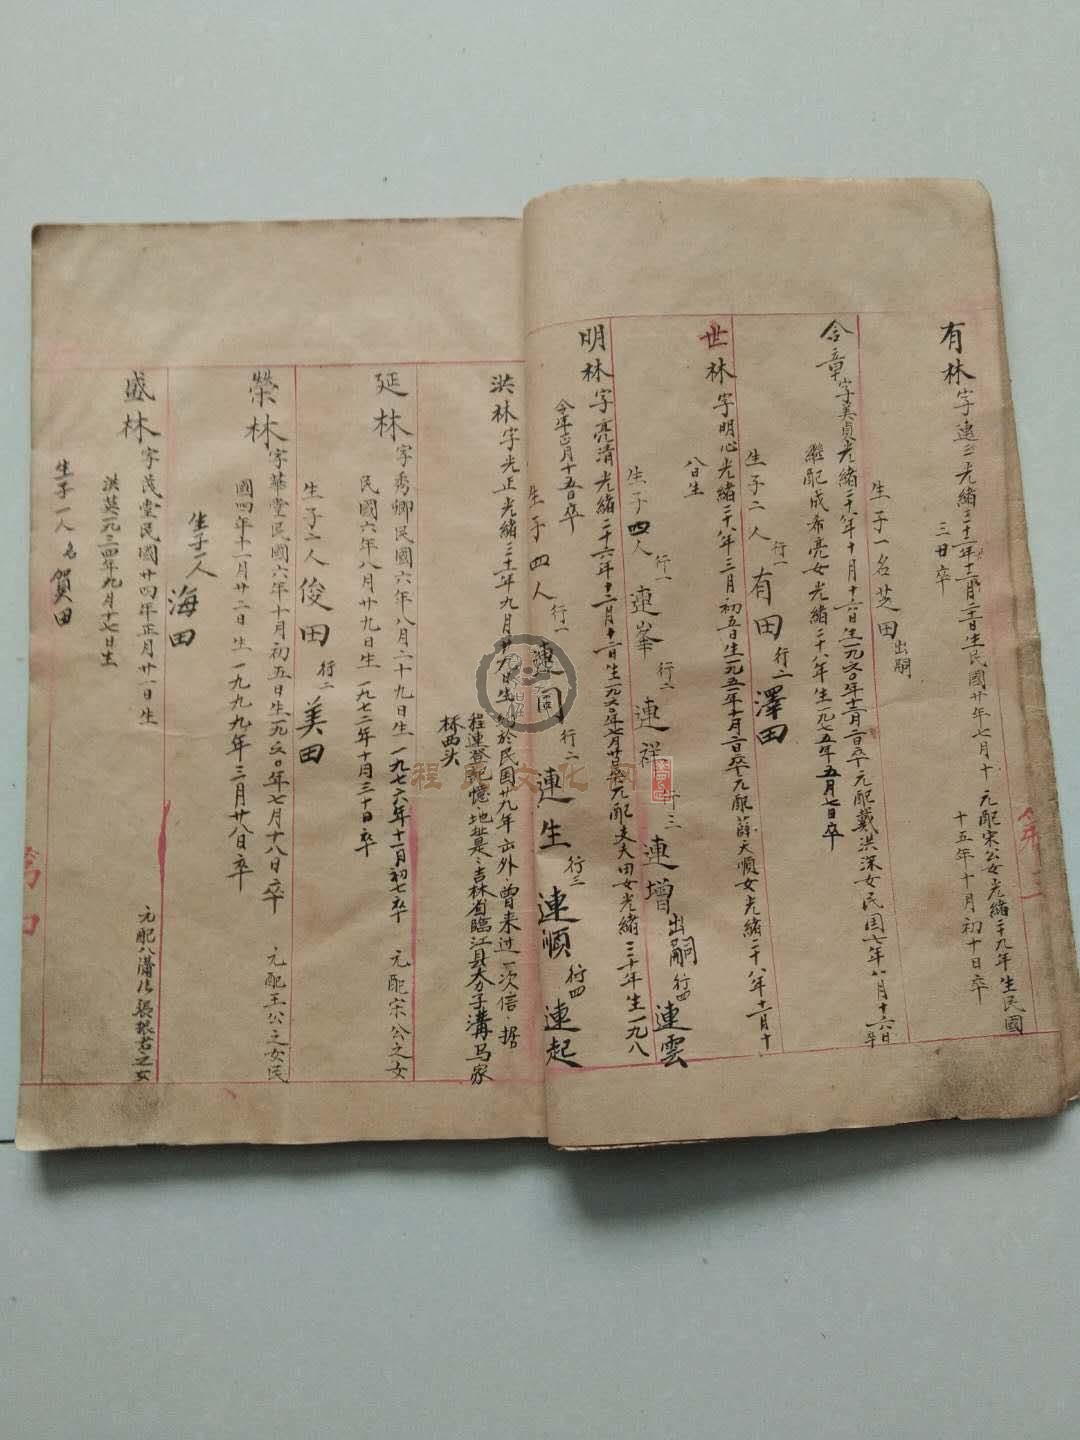 有林字遠三光緒三十二年十二月二十日生民國廿年七月十 元配宋公女光緒二十九年生民國
三廿卒
十五年十月初十日卒
生子一名芝田出嗣
令章字美貞光緒二十八年十月十六日生一九六〇年十二月二日卒元配戴洪深女民国七年八月十六日卒
繼配成希亮女光緒二十八年生一九七五年五月七日卒
生子二人 行一 有田 行二 澤田
世林字明心光緒二十八年三月初五日生一九五一年十月二日卒元配薛天順女光緒二十八年十二月十
八日生
生子四人 行一 連峯 行二 連祥 行三 連增 出嗣 行四 連雲
明林字亮清光緒二十六年十二月十二日生一九六〇年七月廿卒元配支夫田女光緒三十年生一九八
令年二月十五日卒
生子四人 行一 連同 行二 連生 行三 連順 行四 連起
洪林字光正光緒三十二年九月廿九日生 於民国廿九年出外·曾来过一次信·据
程連登記憶·地址是：吉林省臨江县大分子溝马家
林西头
延林字秀卿民國六年八月二十九日生一九七六年十一月初七卒 元配宋公之女
民國六年八月廿九日生一九七二年十月三十日卒
生子二人 俊田 行二 美田
榮林字華堂民國六年十月初五日生一九六〇年七月十八日卒 元配王公之女民
國四年十一月廿二日生一九九九年二月廿八日卒
生子一人 海田
盛林字茂堂民國廿四年正月廿一日生 元配八溝
洪英一九三四年九月十七日生
生子一人名賀田
程氏文化网